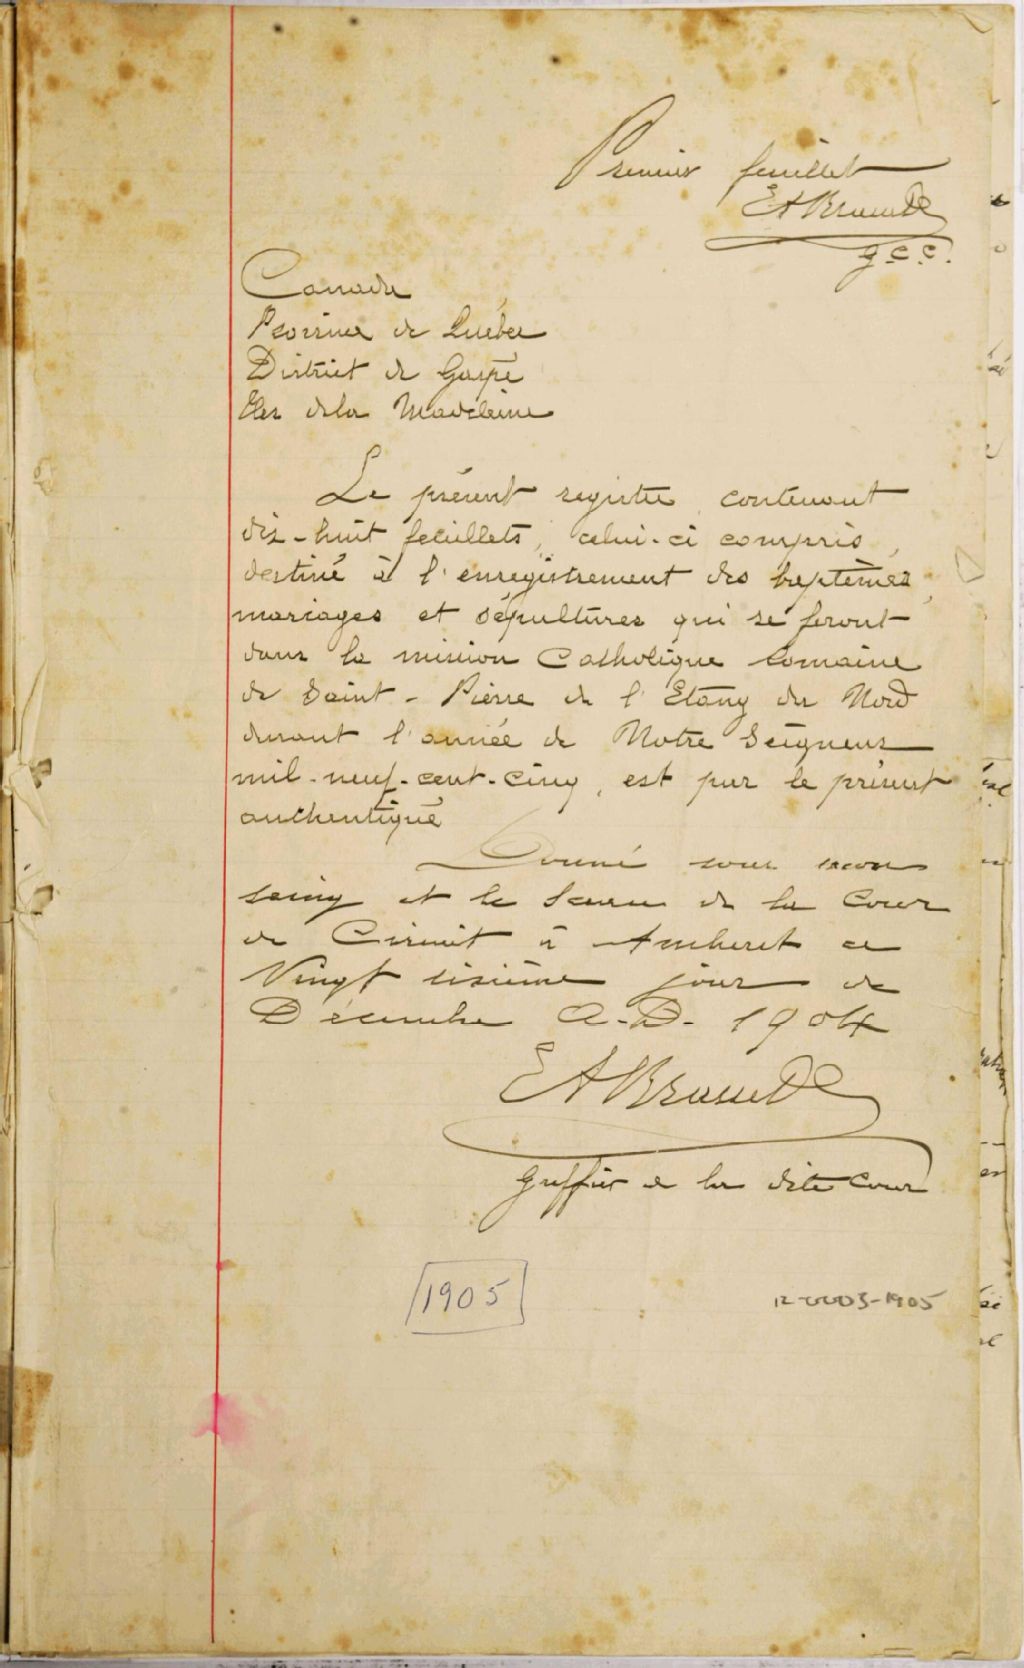 Premier feuillet
E A Brasset
g. c. c.
Canada
Province de Québec
District de Gaspé
Iles de la Madeleine
Le présent registre contenant
dix-huit feuillets, celui-ci compris,
destiné à l'enregistrement des baptêmes,
mariages et sépultures qui se feront
dans la mission Catholique Romaine
de Saint-Pierre de l'Etang du Nord
durant l'année de Notre Seigneur
mil-neuf-cent-cinq, est par le présent
authentiqué
Donné sous mon
seing et le Sceau de la Cour
de Circuit à Amherst ce
Vingt sixième jour de
Décembre A.D. 1904
Greffier de la dite Cour
1905
12-0003-1905